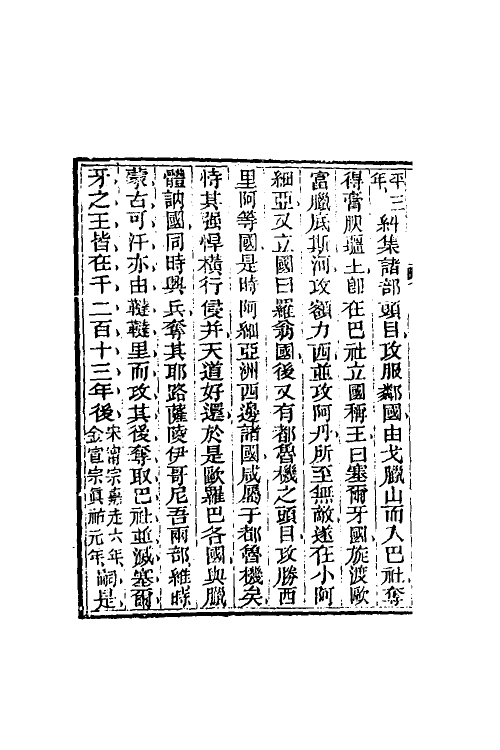 平三年糾集諸部頭目攻服鄰國由戈臘山而入巴社奪
得膏腴壃土卽在巴社立國稱王曰塞爾牙國旋渡歐
富臘底斯河攻額力西並攻阿丹所至無敵遂在小阿
細亞又立國曰羅翁國後又有都魯機之頭目攻勝西
里阿等國是時阿細亞洲西邊諸國咸屬于都魯機矣
恃其强悍橫行侵并天道好還於是歐羅巴各國與臘
體訥國同時與兵奪其耶路薩陵伊哥尼吾兩部維時
蒙古可汗亦由韃韃里而攻其後奪取巴社並滅塞爾
牙之王皆在千二百十三年後宋甯宗嘉定六年金宣宗眞祐元年嗣是